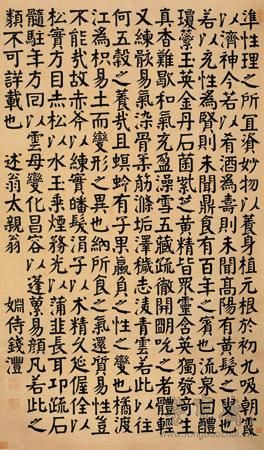 準性理之所宜資妙物以養身植元根於初九吸朝霞
以濟神今若以肴酒為壽則未聞高陽有黃髮之叟也
若以充性為賢則未聞鼎食有百年之賓也流泉甘醴
瓊蘂玉英金丹石菌紫芝黃精皆眾靈含英獨發奇生
貞香難歇和氣充盈澡雪五藏疏徹開明吮之者體輕
又練骸易氣染骨柔筋滌垢澤穢志凌青雲若此以往
何五穀之養哉且螟蛉有子果蠃負之性之變也橘渡
江為枳易土而變形之異也納所食之氣還質易性豈
不能哉故赤斧以練丹赬髮涓子以朮精久延偓佺以
松實方目赤松以水玉乘煙務光以蒲韭長耳邛疏石
髓駐年方回以雲母變化昌容以蓬虆易顏凡若此之
類不可詳載也 述翁太親翁 姻侍錢灃